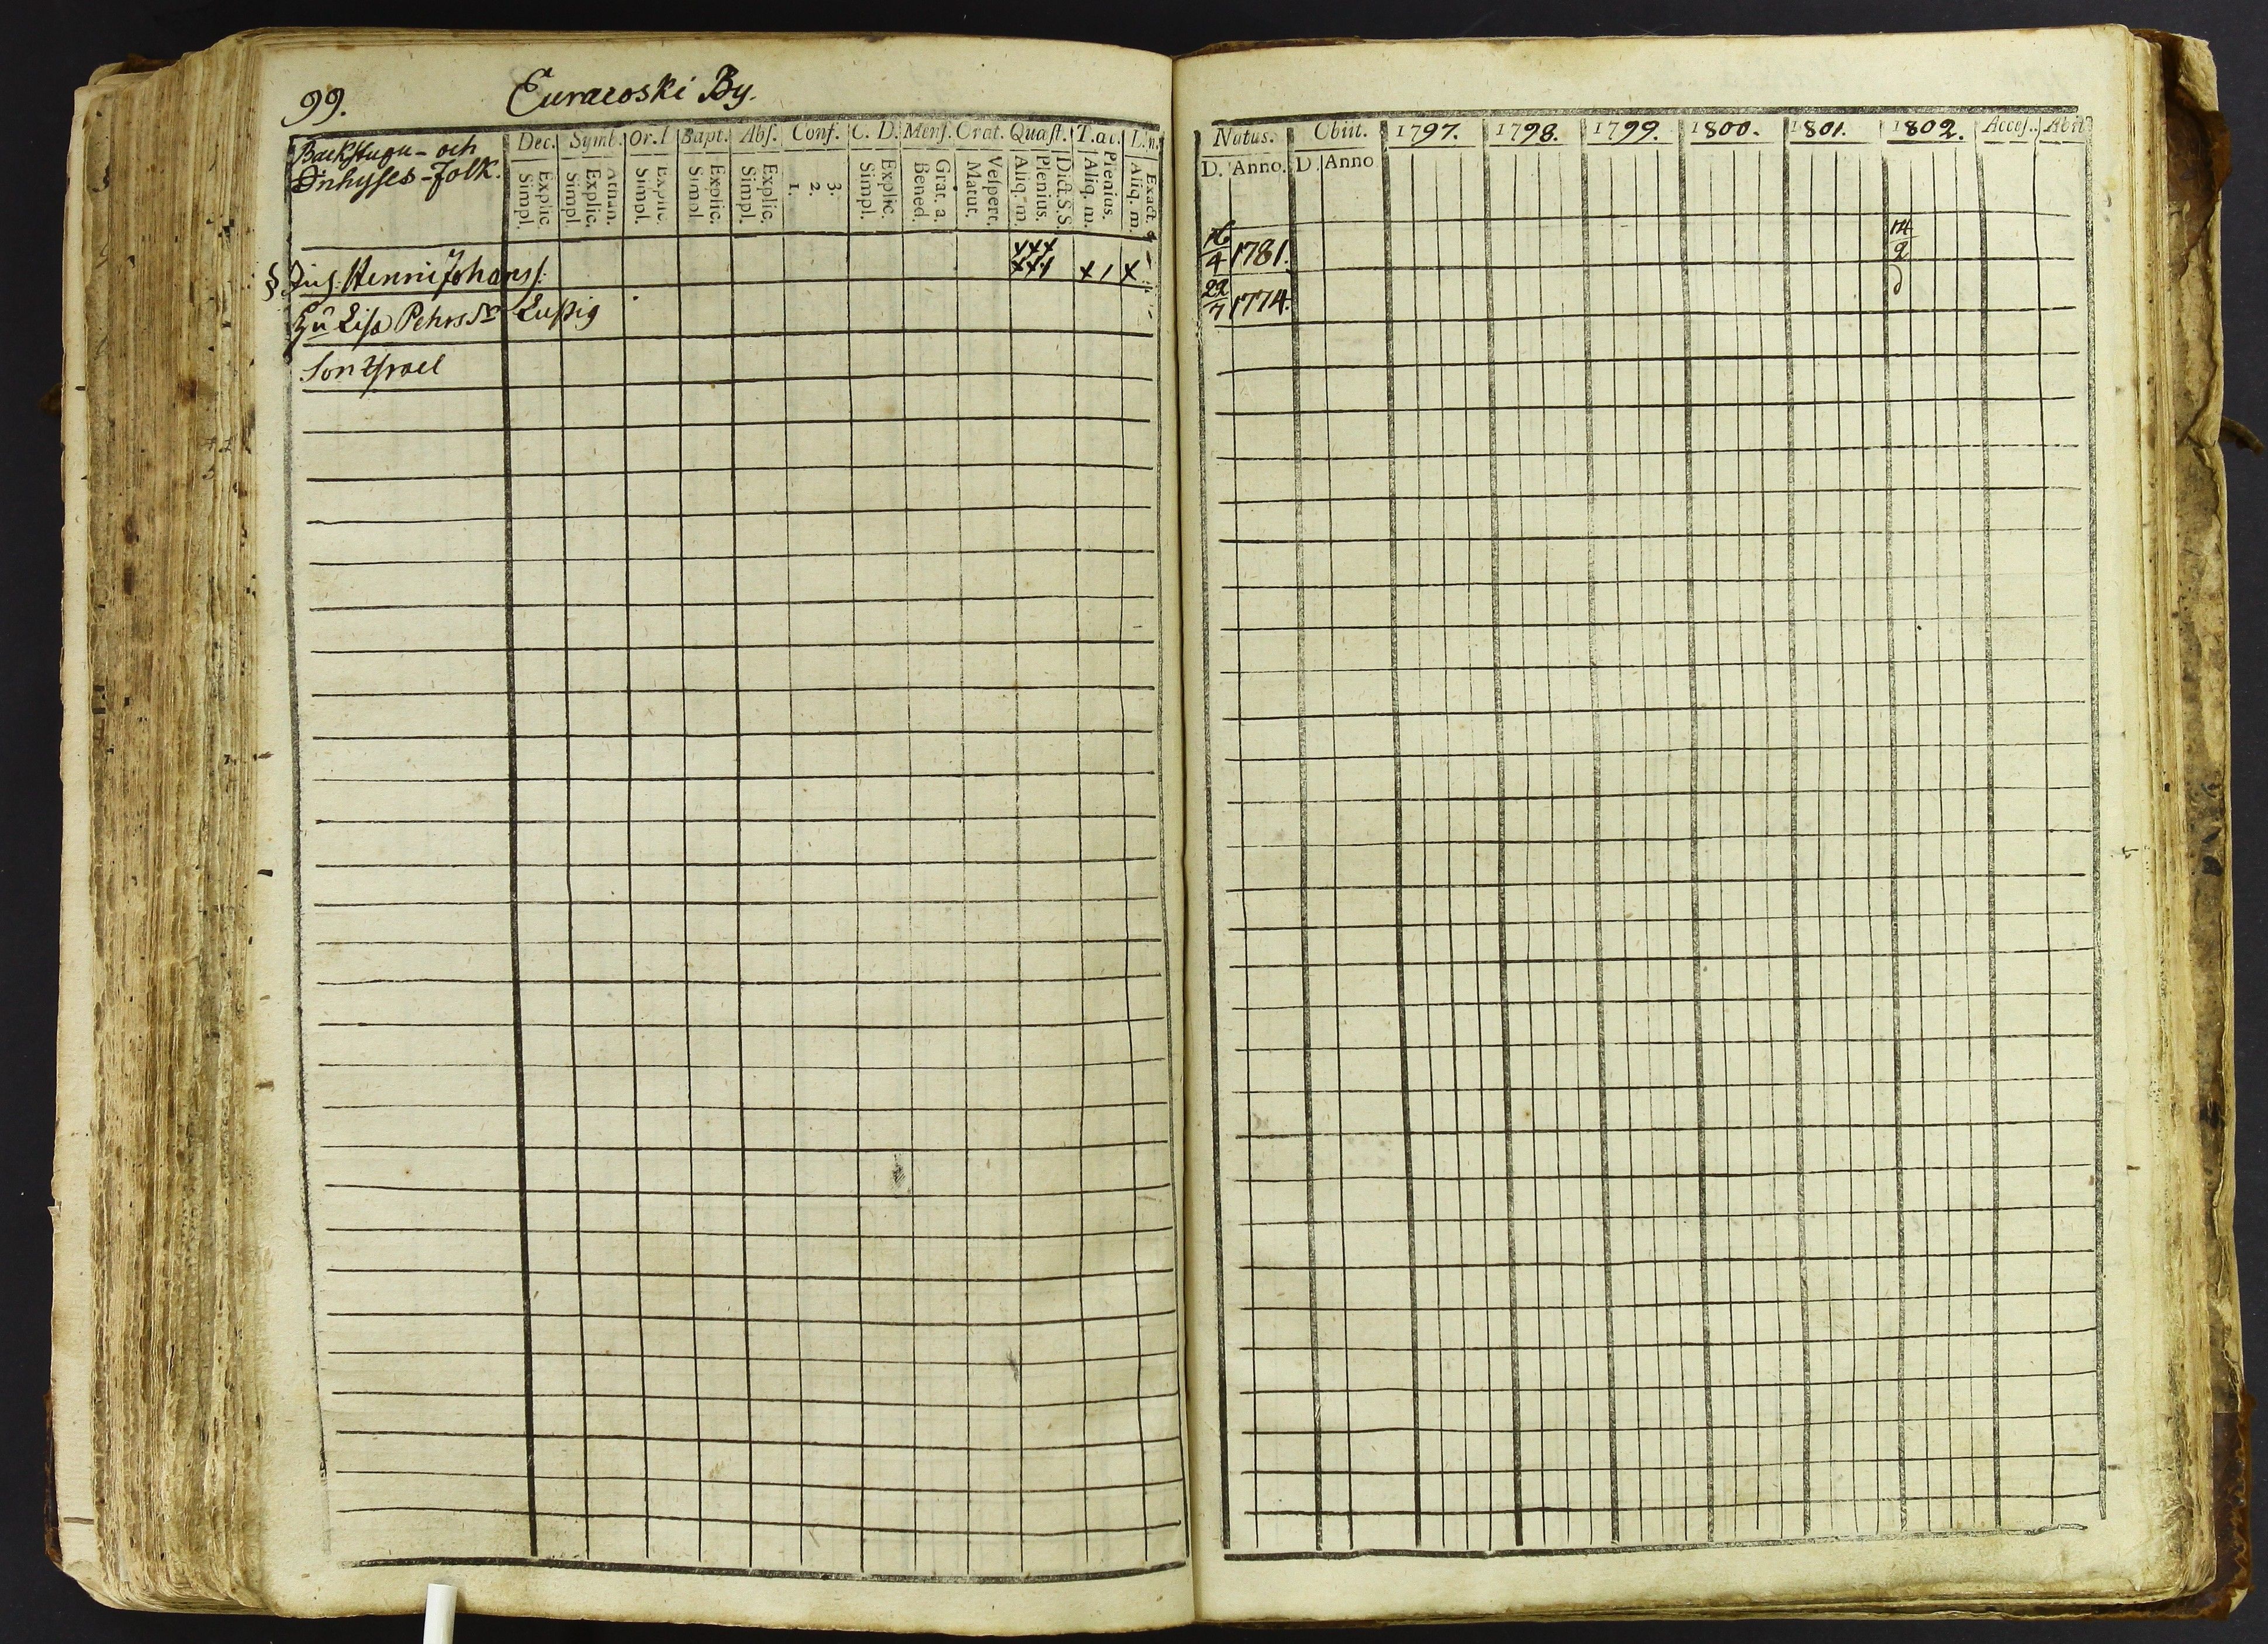 99. Euracoski By.
Backstugu- och
Inhyses-folk.
Dec. Symb. Or. Bapt. Abs. Conf. C. D. Mens. Orat. Quæst. T. æc. L. n.
Explic. Simpl. Athan. Explic. Simpl. Explic. Simpl. Explic. Simpl. Explic. Simpl. 3. 2. 1. Explic. Simpl. Grat. a. Bened. Vespert. Matut. Dict. S. S. Plenius. Aliq. m. Plenius. Aliq. m. Exact. Aliq. m.
§ Henric Johanss. xxx xxx x 1 x
Hu Lisa Pehrsdr
Son Israel
Natus. Obiit. 1797. 1798. 1799. 1800. 1801. 1802. Acces. Abit
D. Anno. D. Anno
16/4 1781. 14/2
22/7 1774.